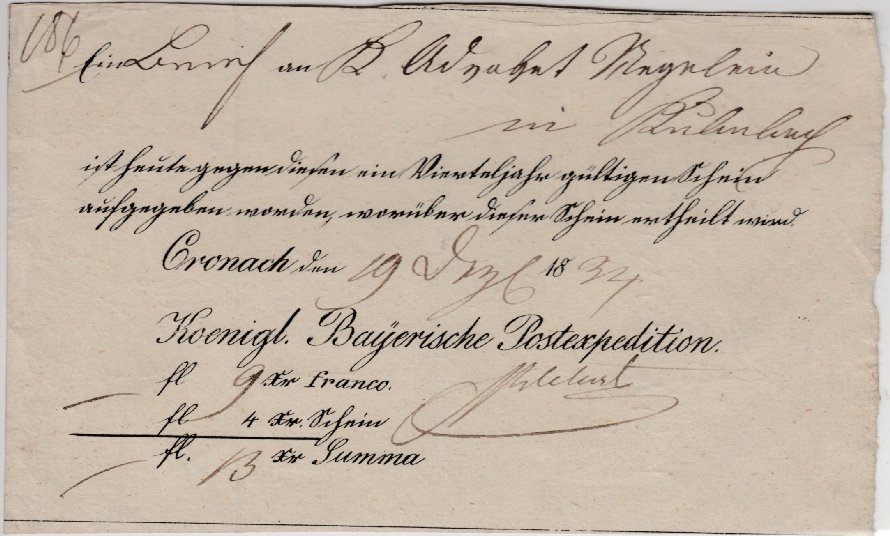 186
Ein Brief an K. Advokat Wegelein
in Kulmbach
ist heute gegen diesen ein Vierteljahr gültigen Schein
aufgegeben worden, worüber dieser Schein ertheilt wird.
Cronach den 19 Dez 1834
Koenigl. Bayerische Postexpedition.
fl 9 Xr franco.
fl. 4 Xr. Schein
fl. 13 Xr Summa